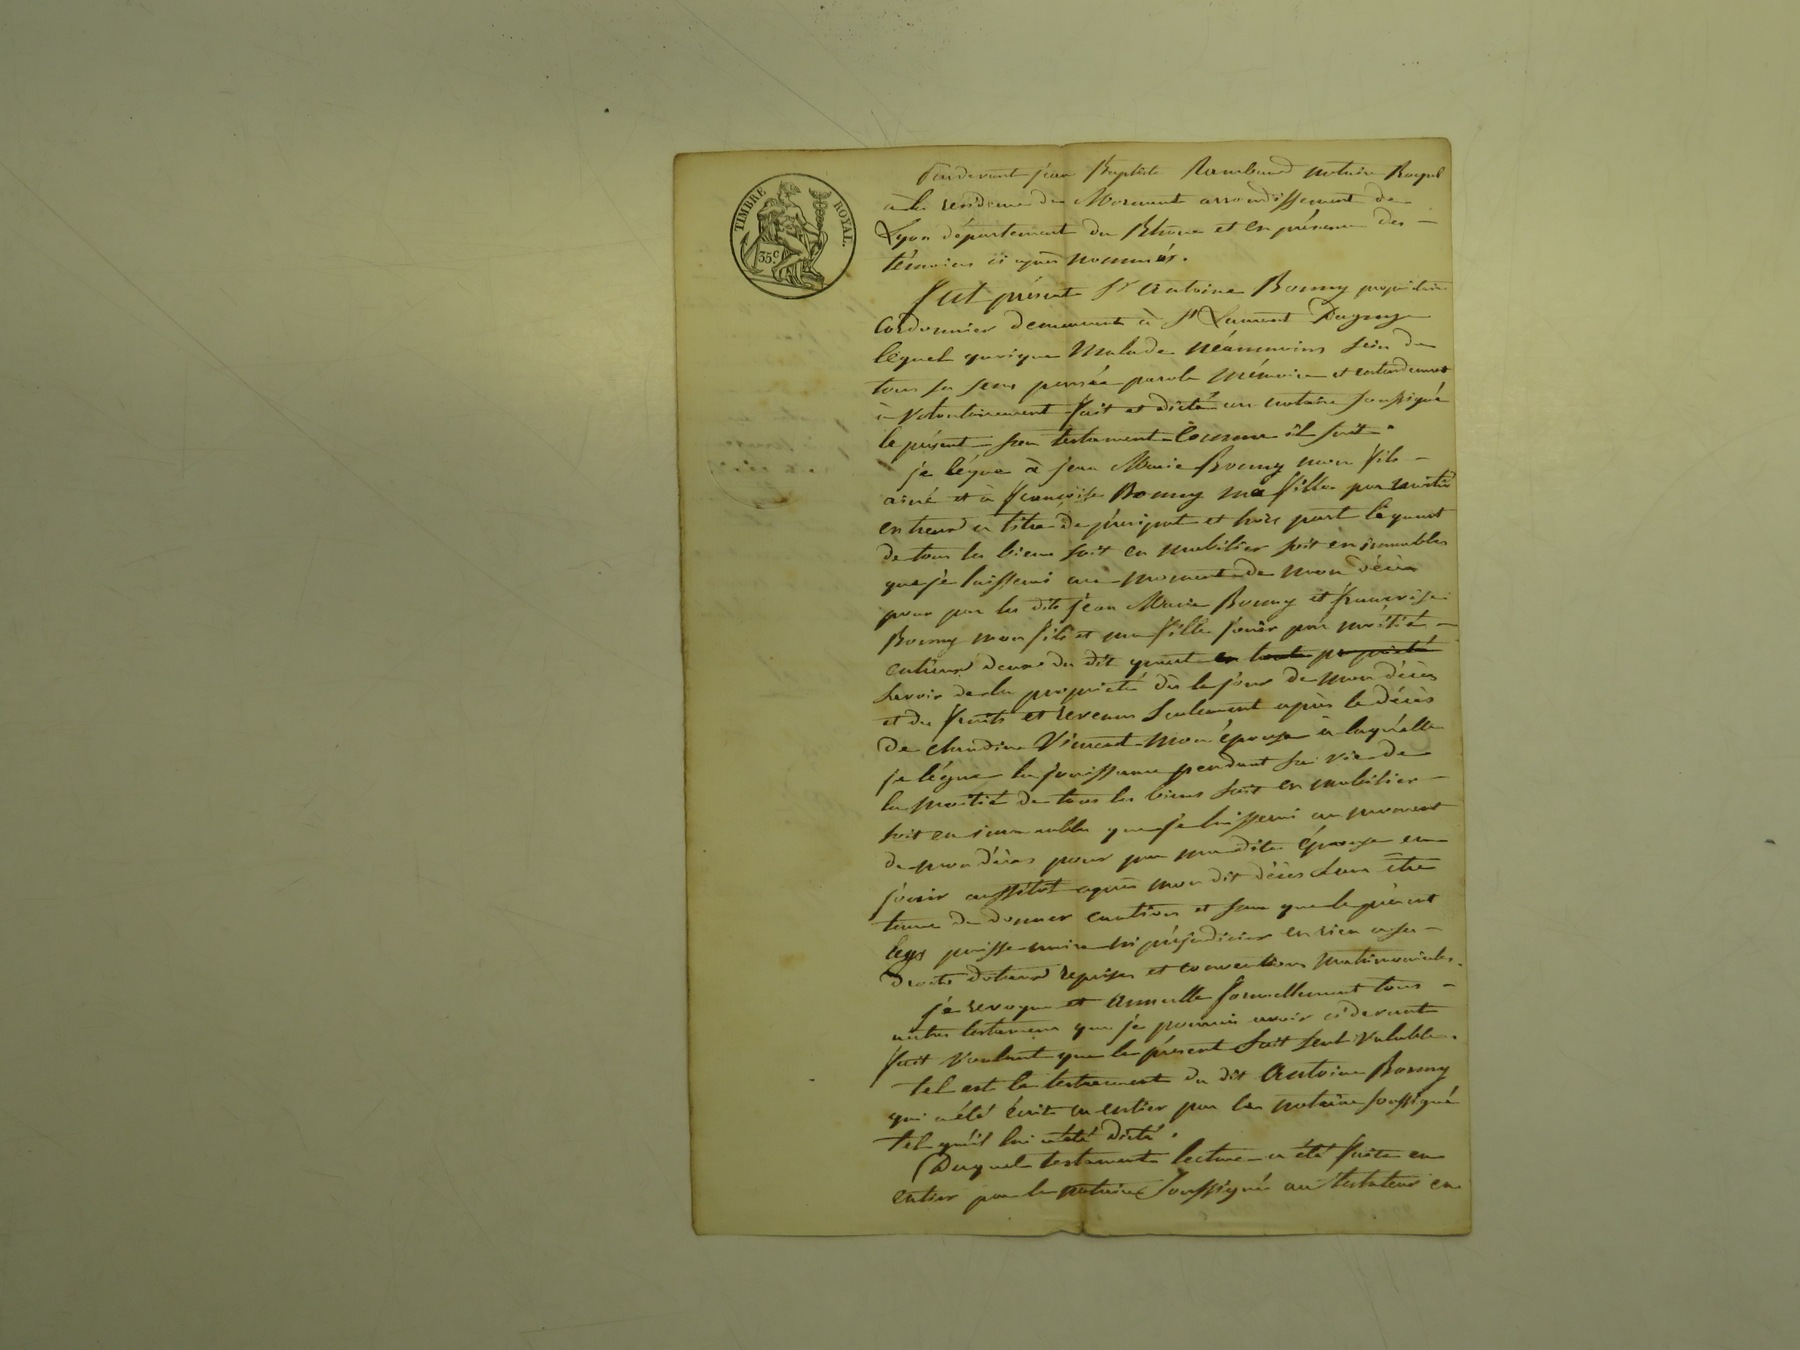 TIMBRE ROYAL.
35 c.
Pardevant jean Baptiste Rambaud notaire Royal
à la résidence de Mornant arrondissement de
Lyon département du Rhône et en présence des
témoins ci après nommés.
fut présent Sr Antoine Bonny propriétaire
Cordonnier demeurant à St Laurent Dagny
lequel quoique Malade néanmoins sain de
tous ses sens pensée parole mémoire et entendement
a Volontairement fait et dicté au notaire soussigné
le présent son testament Comme il suit.
je lègue à jean Marie Bonny mon fils
ainé et à françoise Bonny ma fille par moitié
entreux à titre de préciput et hors part le quart
de tous les biens soit en mobilier soit en immeubles
que je laisserai au moment de mon décès
pour par les dits jean Marie Bonny et françoise
Bonny mon fils et ma fille jouir par moitié
entreux deux du dit quart en toute propriété
Savoir de la propriété dès le jour de mon décès
et des fruits et revenus Seulement après le décès
de claudine Vincent mon épouse à laquelle
je lègue la jouissance pendant sa vie de
la moitié de tous les biens soit en mobilier
soit en immeubles que je laisserai au moment
de mon décès pour par ma dite épouse en
jouir aussitôt après mon dit décès Sans être
tenue de donner caution et sans que le présent
legs puisse nuire ni préjudicier en rien à ses
droits dotaux reprises et conventions matrimoniales.
je révoque et annulle formellement tous
autres testamens que je pourrais avoir ci devant
fait Voulant que le présent Soit Seul Valable.
tel est le testament du dit Antoine Bonny
qui a été écrit en entier par le notaire soussigné
tel qu'il lui a été dicté.
Duquel testament lecture a été faite en
entier par le notaire Soussigné au testateur en